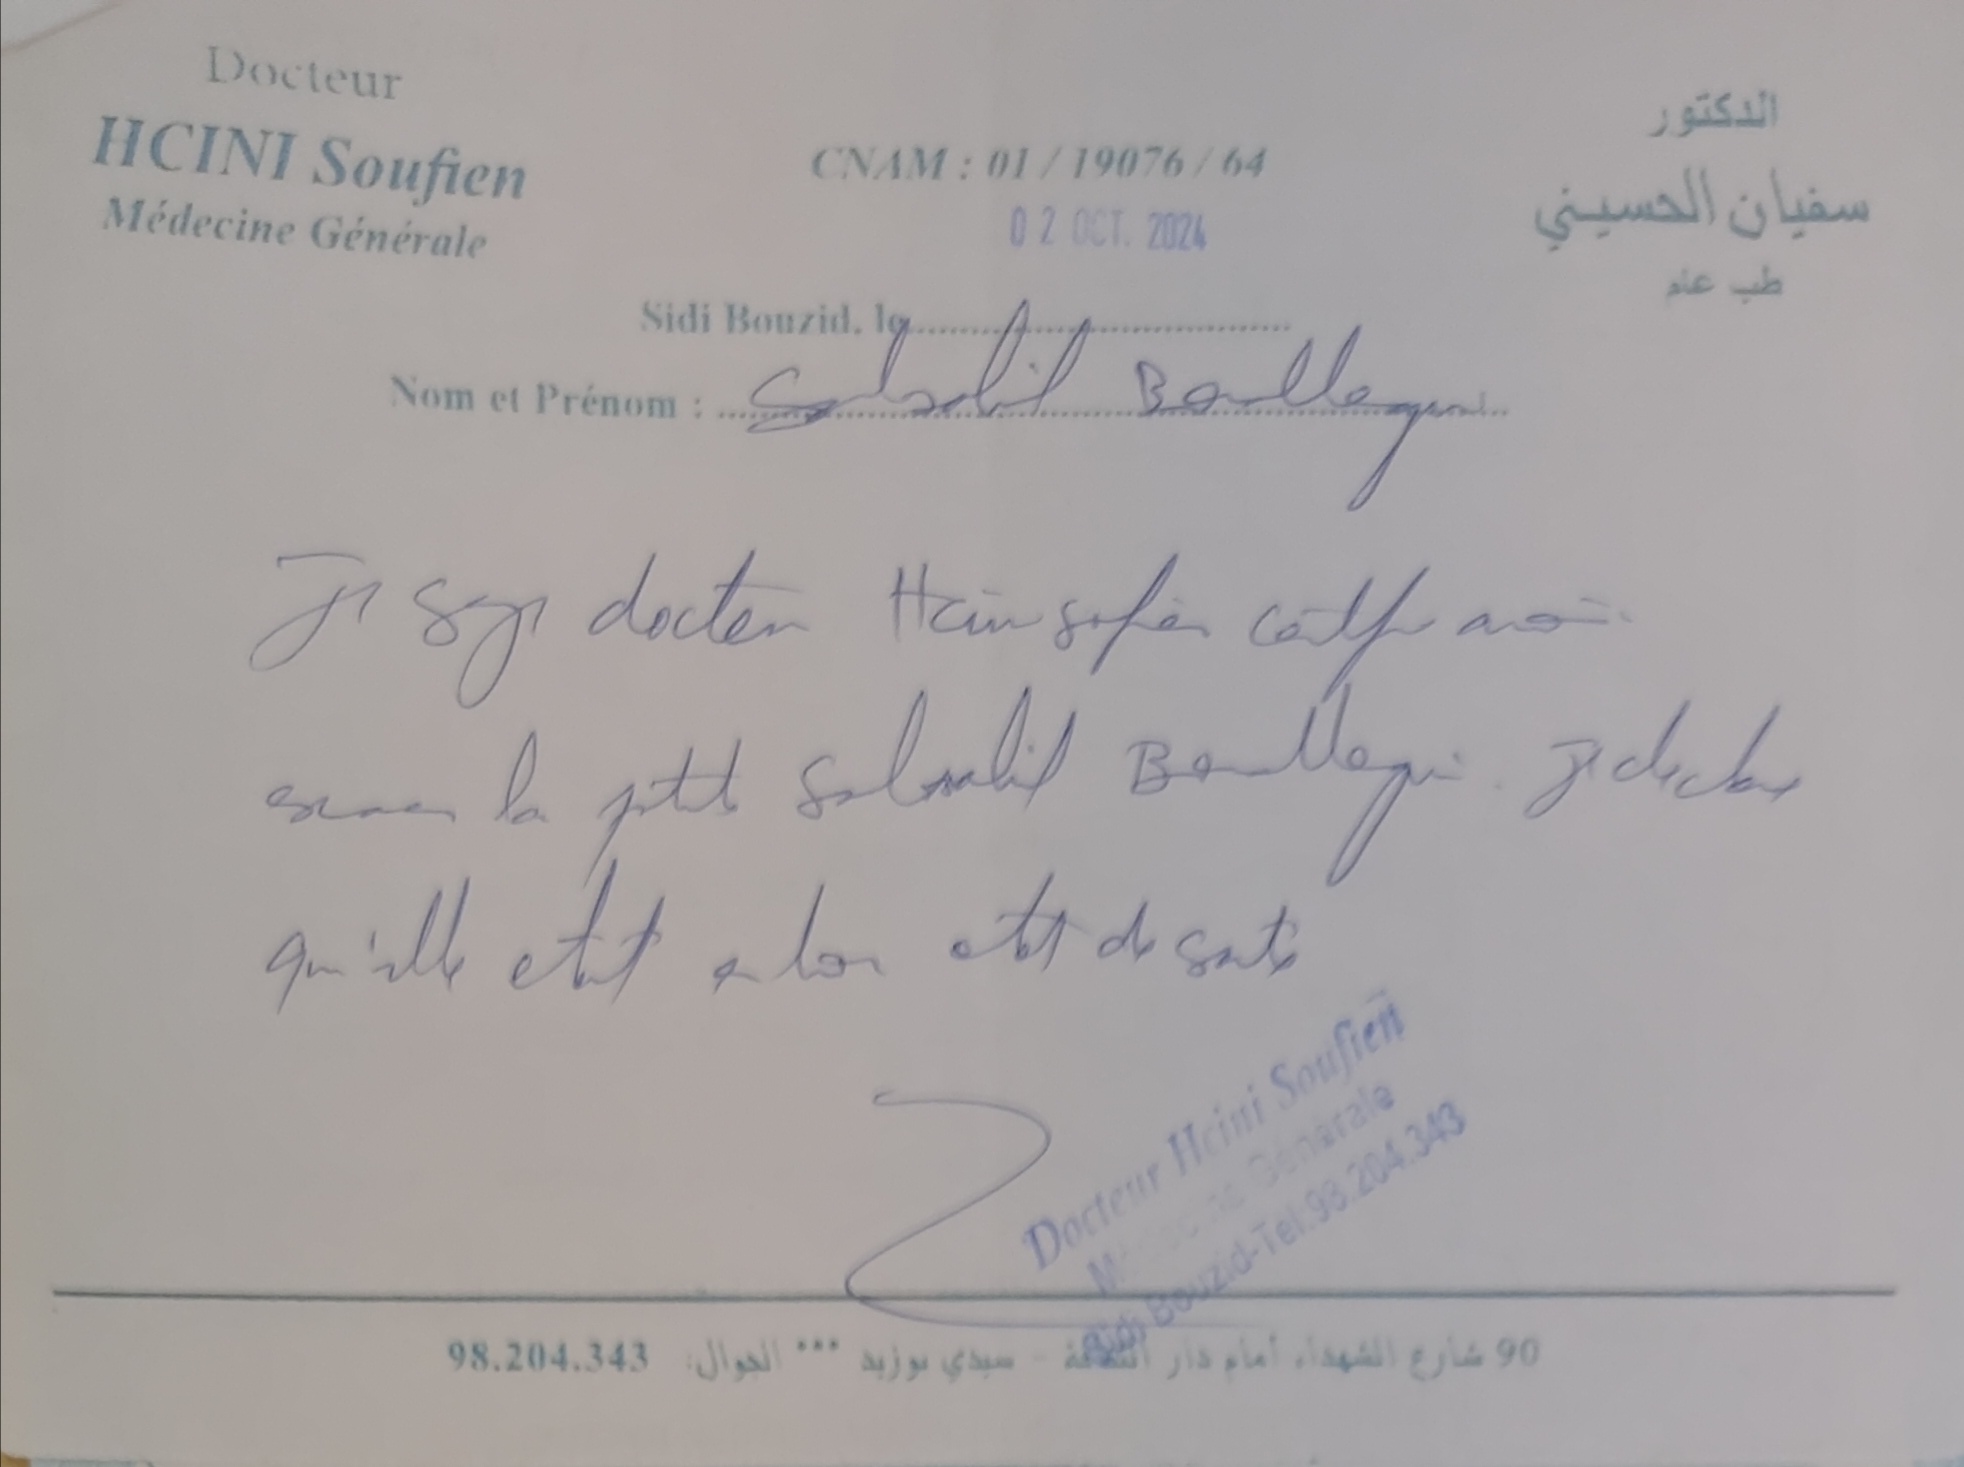 Docteur
HCINI Soufien
Médecine Générale
CNAM : 01 / 19076 / 64
02 OCT. 2024
الدكتور
سفيان الحسيني
طب عام
Sidi Bouzid, le
Nom et Prénom : Salsabil
Je docteur Hcini Sofien certifie avoir
examiner la petite Salsabil Je declare
qu'elle etait en bon etat de santé
Docteur Hcini Soufien
Médecine Générale
Sidi Bouzid-Tel.98.204.343
90 شارع الشهداء أمام دار الثقافة - سيدي بوزيد *** الجوال: 98.204.343